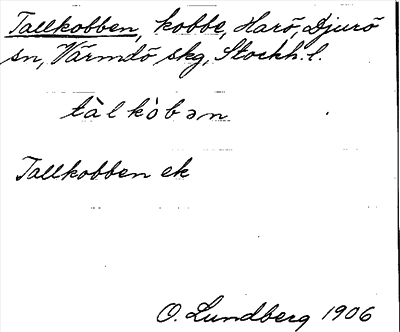 Tallkobben, kobbe, Harö, Djurö
sn, Värmdö skg, Stockh. l.
tàlkòbən
Tallkobben ek
O. Lundberg 1906